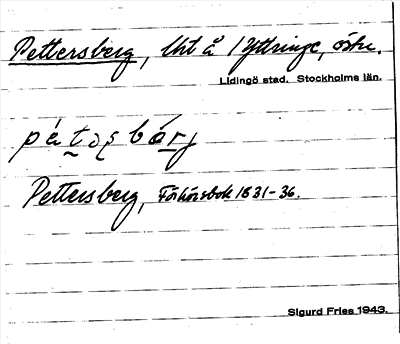 Pettersberg, lht å Yttringe, östr.
Lidingö stad. Stockholms län.
Pettersberg, Förhörsbok 1831-36.
Sigurd Fries 1943.